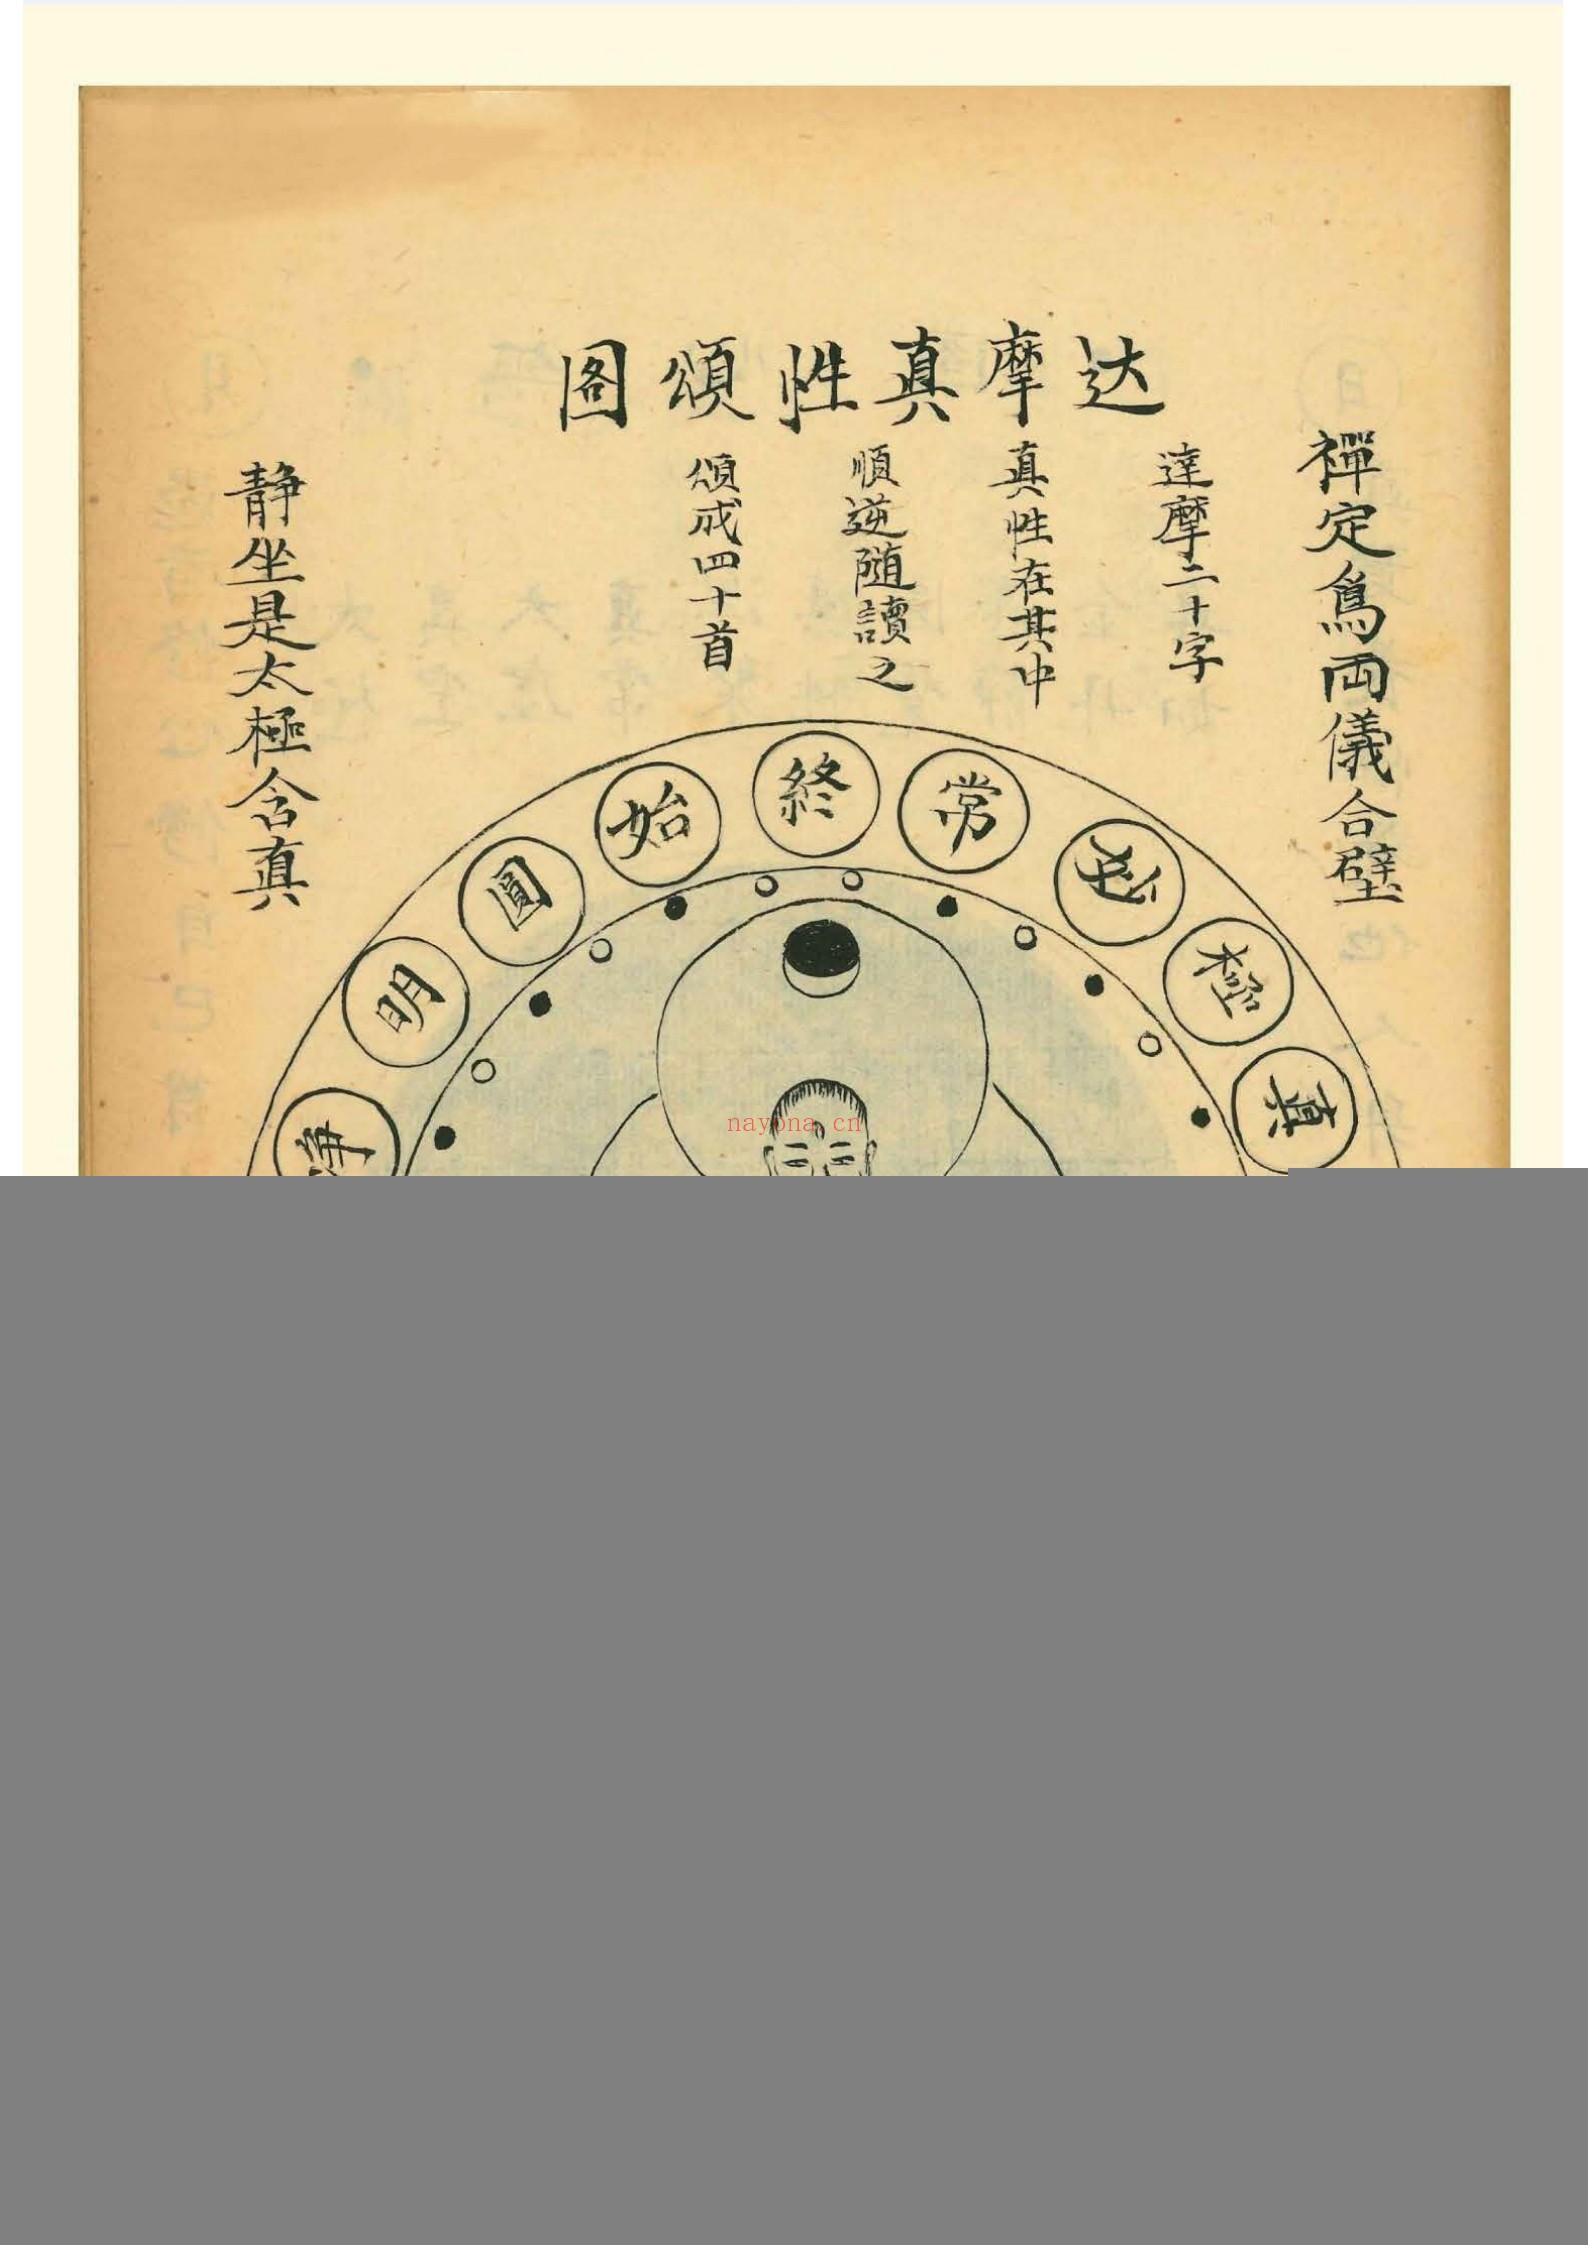 达摩真性頌图
禪定爲両儀合璧
達摩二十字
真性在其中
順逆随讀之
頌成四十首
静坐是太極含真
真
極
妙
常
終
始
圓
明
淨
nayona.cn